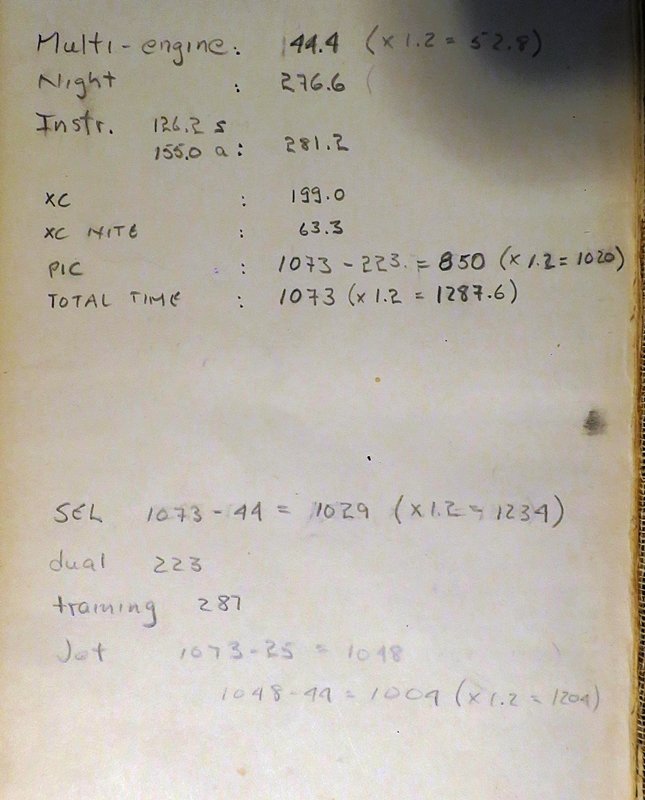 Multi-engine: 44.4 (x 1.2 = 52.8)
Night : 276.6 (
Instr. 126.2 s
155.0 a: 281.2
XC : 199.0
XC NITE : 63.3
PIC : 1073 - 223. = 850 (x 1.2 = 1020)
TOTAL TIME : 1073 (x 1.2 = 1287.6)
SEL 1073 - 44 = 1029 (x 1.2 = 1234)
dual 223
training 287
Jet 1073-25 = 1048
1048-44 = 1004 (x 1.2 = 1204)